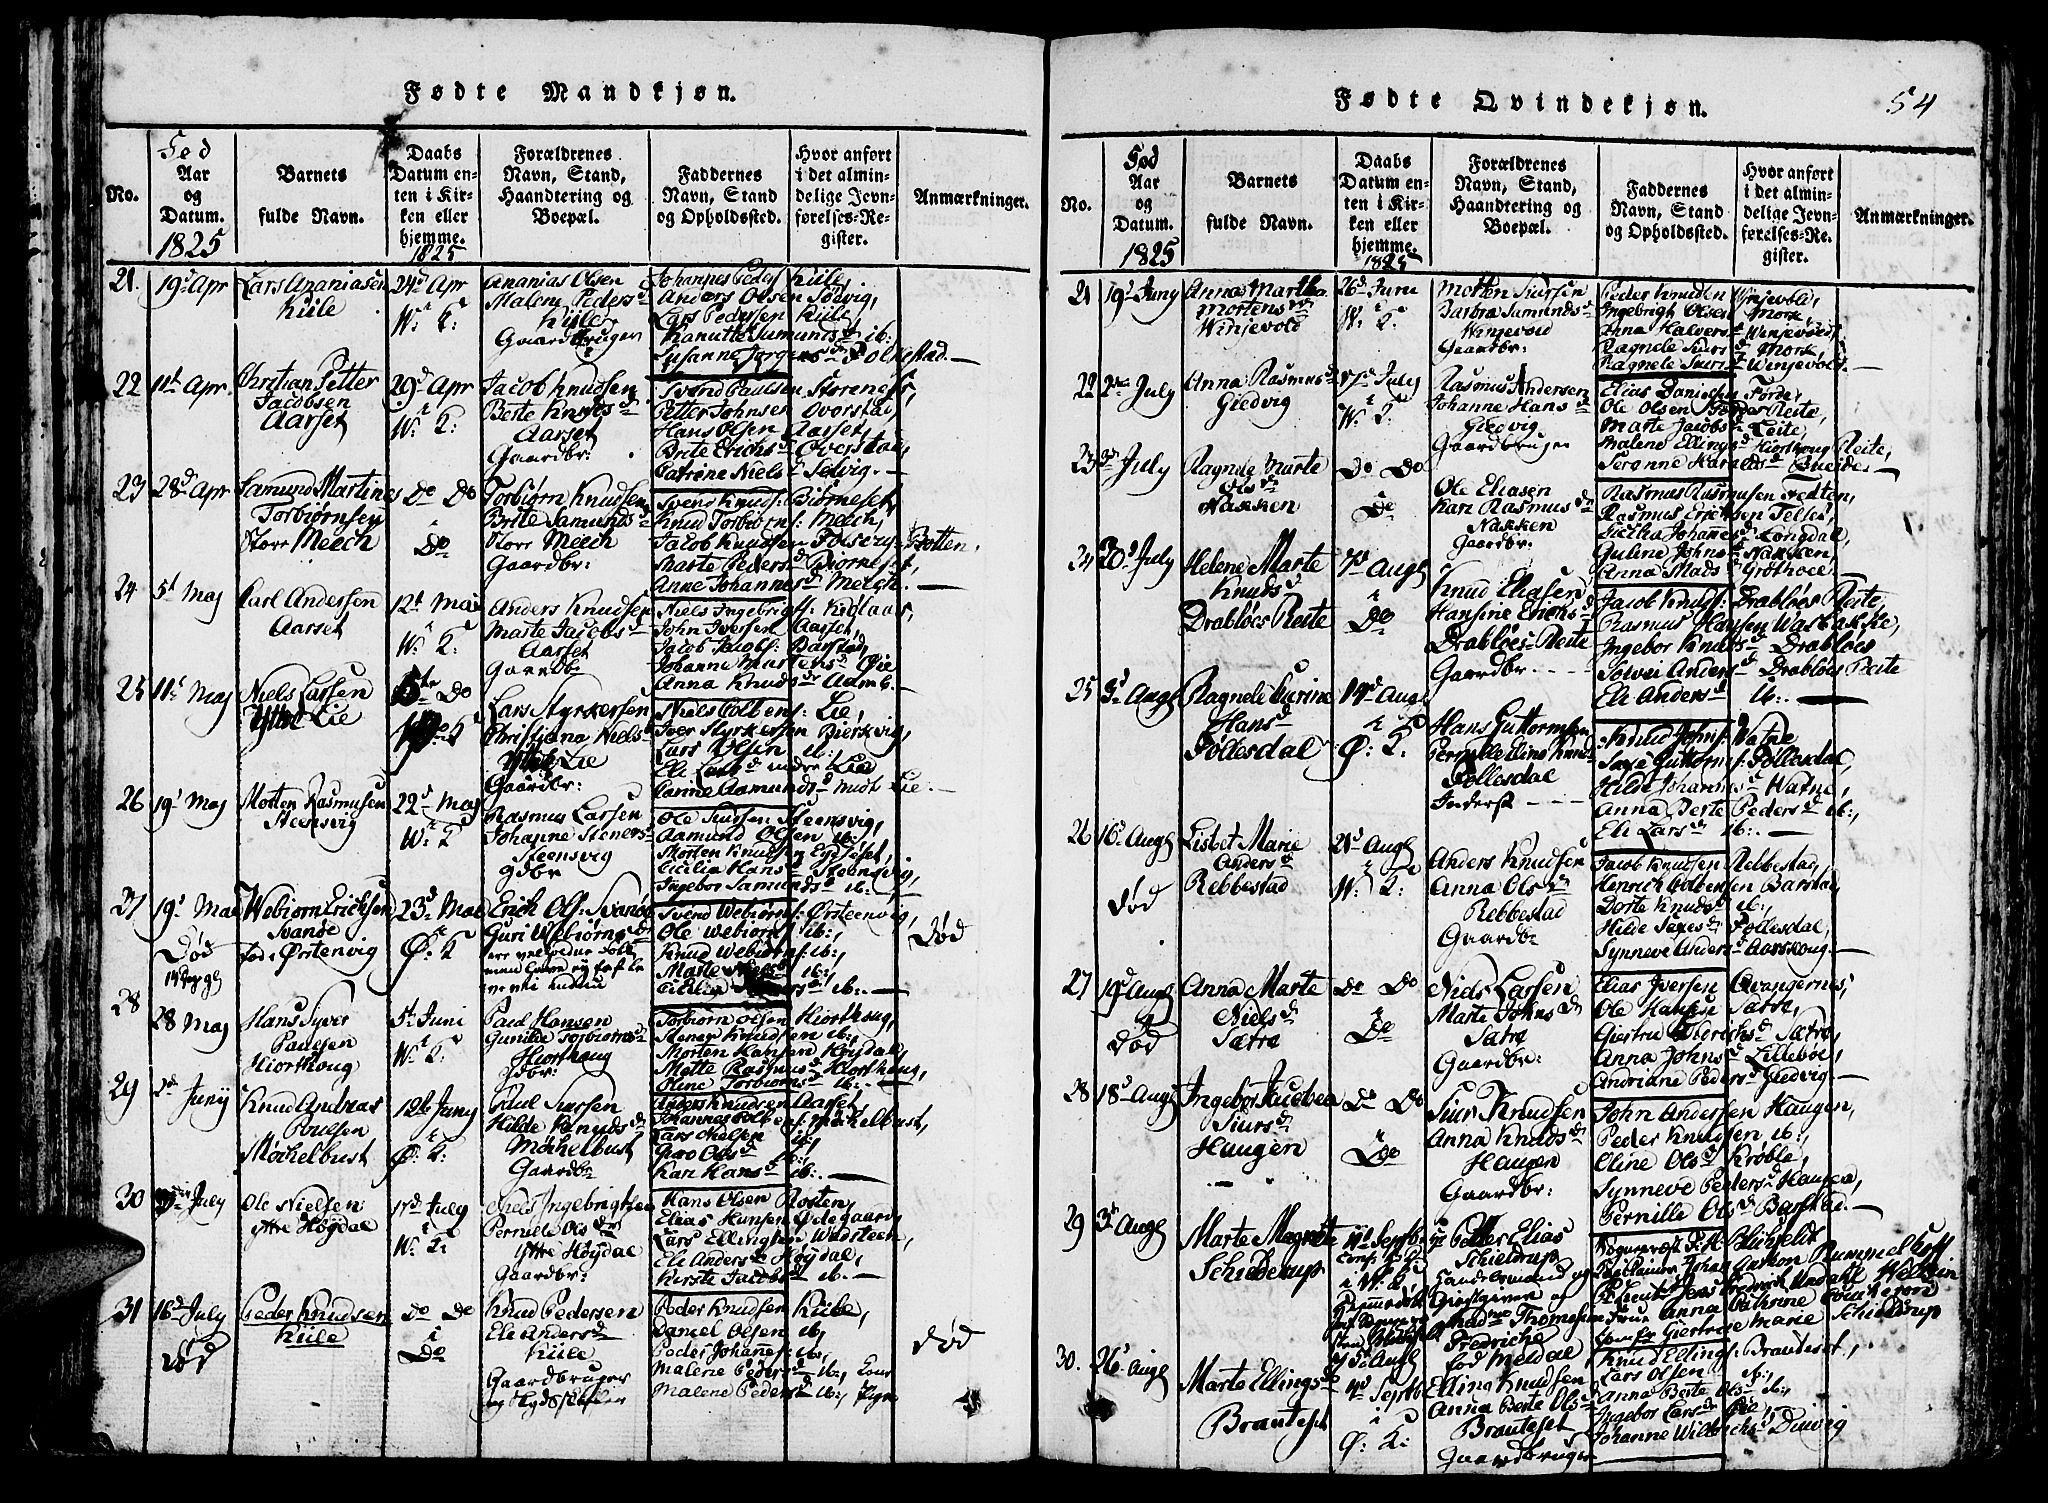 Fødte Mandkjøn.
No.
Fød
Aar
og
Datum.
1825
Barnets
fulde Navn.
Daabs
Datum en-
ten i Kir-
ken eller
hjemme.
1825
Forældrenes
Navn, Stand,
Haandtering og
Boepæl.
Faddernes
Navn, Stand
og Opholdssted.
Hvor anført
i det almin-
delige Jevn-
førelses-Re-
gister.
Anmærkninger.
21 19d Apr Lars Ananiasen
Kiile
24d Apr
W: K:
Ananias Olsen
Malene Peders d
Kiile
Gaardbruger
Johannes Peders Kiile,
Anders Olsen Solvig,
Lars Pedersen Kiile,
Kanutte Samunds d ib:
Susanne Jørgens d Folkestad.
22 11t Apr Christian Petter
Jacobsen
Aarset
29d Apr
W: K:
Jacob Knudsen
Berte Knuds d
Aarset
Gaardbr:
Svend Paulsen Storenes,
Petter Johnsen Overstad,
Hans Olsen Aarset,
Brite Erichs d Overstad,
Catrine Niels d Selvig.
23 28d Apr Samund Martines
Torbiørnsen
Store Meech
Do Do
i
Do
Torbiørn Knudsen
Brite Samunds d
Store Meech
Gaardbr:
Svend Knuds: Biørneset,
Knud Torbiørns: Meech,
Jacob Knudsen Folsvig Botten,
Marte Peders d Biørneset,
Anne Johannes d Melche.
24 5t Maj Carl Andersen
Aarset
12t Mai
W: K:
Anders Knudsen
Marte Jacobs d
Aarset
Gaardbr
Niels Ingebrigts: Kiølaas,
John Iversen Aarset,
Jacob Jacobs: Barstad,
Johanna Martens d Øie
Anna Knuds dr Aamb.
25 11t Maj Niels Larsen
Ytre Lie
Do
Lars Styrkersen
Christiana Niels d
Ytre Lie
Gaardbr:
Niels Colbens: Lie,
Iver Styrkersen Bierkvig,
Lars Olsen ib:
Eli Lars d indre Lie
Canne Aamunds d midt Lie.
26 19d Maj Morten Rasmusen
Steensvig
22d Maj
W: K
Rasmus Larsen
Johanne Steners d
Steensvig
gdbr
Ole Siursen Steensvig,
Aamund Olsen ib:,
Morten Knudsen Egseset,
Cicilia Hans d Steensvig,
Ingebor Samunds d ib:,
27 19d Mai Webiørn Erichsen
Svande
fød i Ørstenvig
Død
14 Dage gl
23d Mai
Ø: K
Erich Ols: Svande
Guri Webiørns d
Svend Webiørns: Ørsteenvig,
Ole Webiørns ib:,
Knud Webiørns: ib:,
Marte Niels d ib:,
ib:
Død
28 28 Maj Hans Syver
Paulsen
Hiorthoug
5t Juni
W: K:
Paul Hansen
Gunilde Torbiørns d
Hiorthoug
gdbr:
Torbiørn Olsen Hiorthoug,
Stener Knudsen ib:,
Morten Hansen Høydal,
Mette Rasmus d Hiorthoug,
Oline Torbiørns d ib:
29 2d Junij Knud Andreas
Poulsen
Møchelbust
12t Juny
Ø: K:
Poul Siursen
Hilde Knuds d
Møchelbust
Gaardbr
Anders Knudsen Aarset,
Johannes Colbens: Møchelbust,
Lars Nielsen ib:,
Guro Ols d ib:,
Kari Hans d ib:
30 July Ole Nielsen
ytre Høydal
17d July
i
W: K:
Niels Ingebrigtsen
Pernille Ols dr
Ytre Høydal
Gaardbr:
Hans Olsen Rosten,
Elias Hansen Ødegaard,
Lars Ellingsen Wadsteen,
Eli Anders d Høydal,
Kirste Jacobs d ib.
31 16d July Peder Knudsen
Kiile
Død
Do Do
i
Do
Knud Pedersen
Eli Anders d
Kiile
Gaardbruger
og Lydskoffer
Peder Knudsen Kiile,
Daniel Olsen ib,
Peder Johanes: ib:,
Malene Peders d ib:, Kone
Malene Peders d ib:, Pige
Død
Fødte Qvindekjøn. 54
No.
Fød
Aar
og
Datum.
1825
Barnets
fulde Navn.
Daabs
Datum en-
ten i Kir-
ken eller
hjemme.
1825
Forældrenes
Navn, Stand,
Haandtering og
Boepæl.
Faddernes
Navn, Stand
og Opholdssted.
Hvor anført
i det almin-
delige Jevn-
førelses-Re-
gister.
Anmærkninger.
21 19d Juny Anna Martha
Mortens dr
Winjevold
26d June
W: K:
Morten Siursen
Barbra Samunds d
Winjevold
Gaardbr:
Peder Knudsen Winjevold,
Ingebrigt Olsen Mork,
Anna Halvers d Winjevold,
Ragnele Siurs d Mork,
Ragnele Siurs d Winjevold.
22 2den July Anna Rasmus d
Giedvig
17d July
W: K:
Rasmus Andersen
Johanne Hans d
Giedvig
Gaardbruger
Elias Danielsen Førde,
Ole Olsen Førde Reite,
Marte Jacobs d Leite,
Malene Ellings d Hiorthoug Reite,
Seranne Haralds d Eneide.
23 3d July Ragnele Marte
Ols dr
Nakken
Do Do
Do
Ole Eliasen
Kari Rasmus dr
Nakken
Gaardbr:
Rasmus Rasmusen Tedten,
Rasmus Ericksen Telles,
Giertha Johannes d Longdal,
Guline Johns d Nakken
Anna Mads d Grothole
24 30d July Helene Marte
Knuds d
Drabløes Reite
7d Augt
i
Do
Knud Eliasen
Hansine Erichs d
Drabløes Reite
Gaardbr.
Jacob Knuds: Drabløes Reite,
Rasmus Hansen Wasbakke,
Ingebor Knuds d Drabløes
Solvei Anders d Drabløes Reite
Eli Anders d ib.
25 3d Augt Ragnele Karine
Hans d
Follesdal
14d Augt
Ø: K:
Hans Guttormsen
Pernille Elins Knuds d
Follesdal
Inderst
Knud Johns: Watne
Saxe Guttorms: Follesdal,
Hilde Johannes d Watne,
Anna Berte Peders d ib:,
Eli Lars dr ib:
26 16d Augt Lisbet Marie
Anders d
Rebbestad
Død
21d Augt
W: K:
Anders Knudsen
Anna Ols dr
Rebbestad
Gaardbr
Jacob Knudsen Rebbestad,
Henrich Colbensen Barstad,
Dorte Knuds d ib:,
Hilde Saxes d Follesdal
Synneve Anders d Aarskoug.
27 19d Augt Anna Marte
Niels d
Sætre
Død
Do Do
Do
Niels Larsen
Marte Johns d
Sætre
Gaardbr:
Elias Iversen Qvangernes,
Ole Hansen Sætre,
Giertrud Didrichs d Sætre,
Anna Johns d Lillebøe,
Andriane Peders d Giedvig
28 18d Augt Ingebor Jacobea
Siurs d
Haugen
Do Do
Do
Siur Knudsen
Anna Knuds d
Haugen
Gaardbr:
John Andersen Haugen,
Peder Knudsen ib:,
Oline Ols d Krøble,
Synneve Peders d Haugen,
Pernille Ols d Barstad.
29 3d Augt Marte Magrete
Schielderup
4d Septb
i W: K:
Petter Elias
Schieldrup
Handelsmand og
Giestgiver og
Madme Thomasen
Fredriche
fød Meldal
Sogneprest P: H. Buschfeldt
Johan Gaskon Rummelhoff
Jens Fredrik Madahl Welblin
Frue Anna Cathrine
Jomfr Giertrue Marie Schieldrup
30. 26d Augt Marte Ellings d
Brauteset
4d Septb
i
Ø: K:
Elling Knudsen
Anna Berte Ols d
Brauteset
Gaardbruger
Knud Ellings: Brauteset,
Lars Olsen ib:,
Anna Berte Ols d ib:,
Ingebor Lars d Øie,
Johanne Wilbrichs d Diuvig